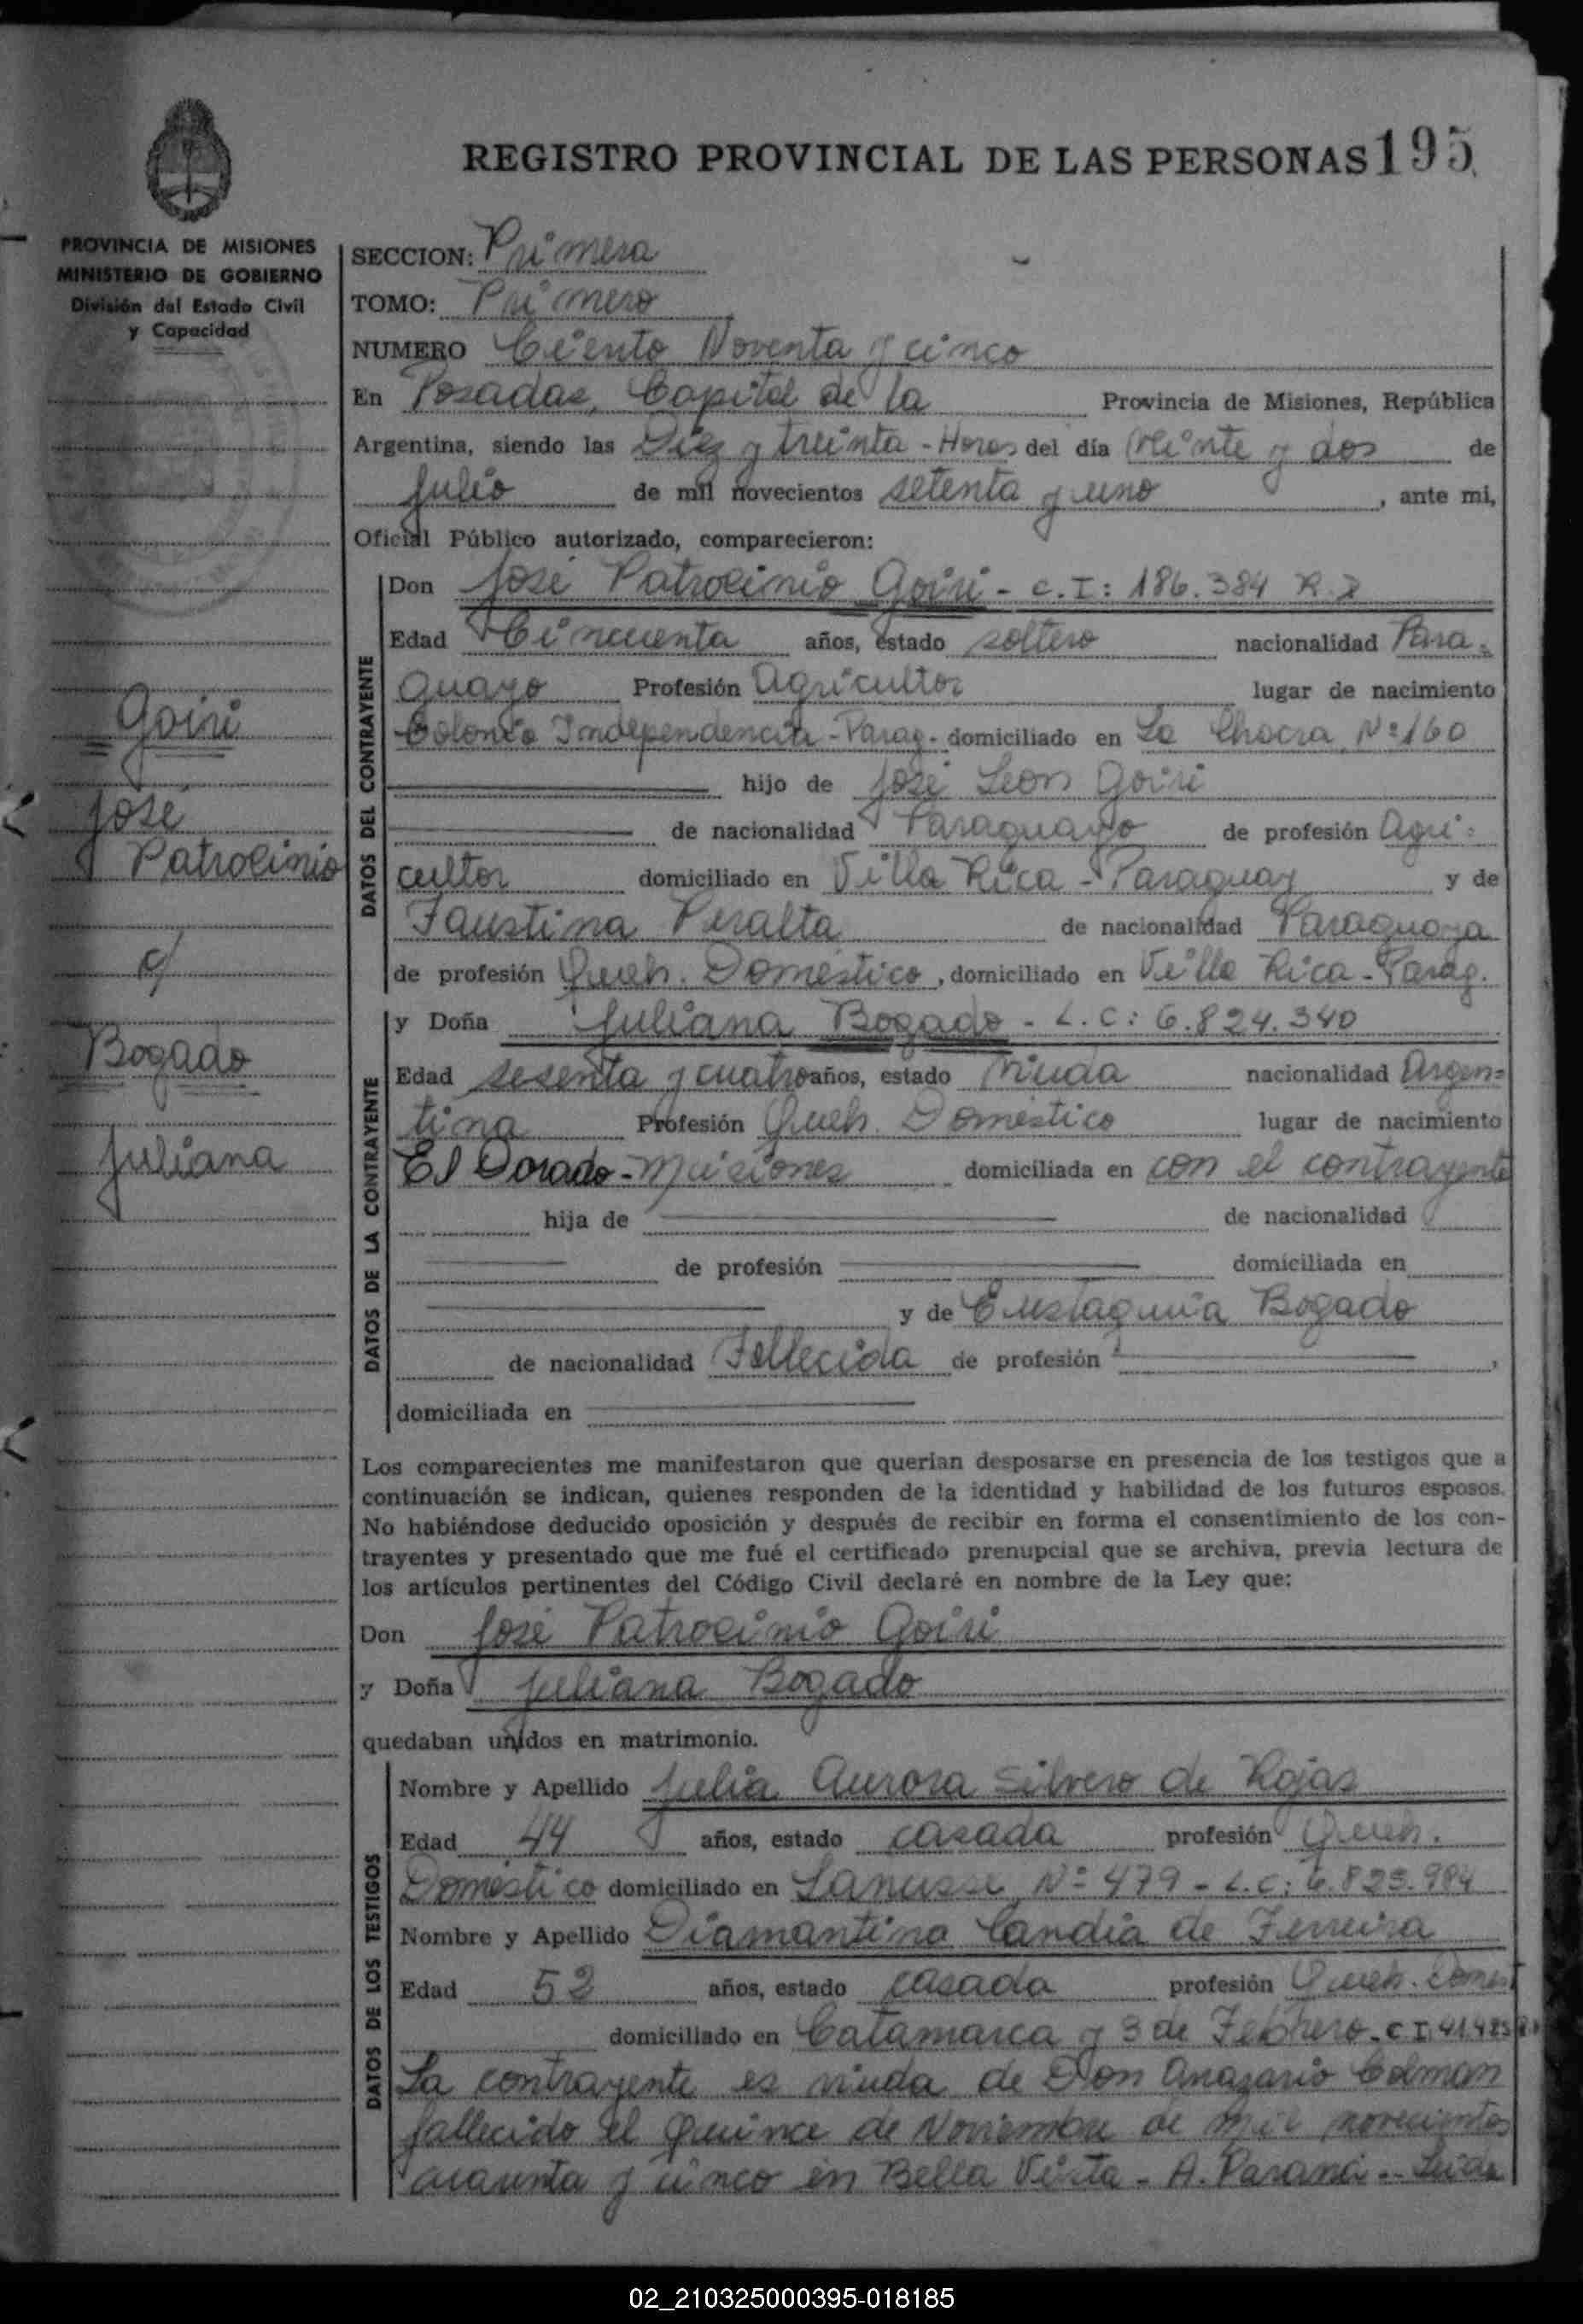 REGISTRO PROVINCIAL DE LAS PERSONAS 195
PROVINCIA DE MISIONES
MINISTERIO DE GOBIERNO
División del Estado Civil
y Capacidad
Goiri
José
Patrocinio
c/
Bogado
Juliana
SECCION: Primera
TOMO: Primero
NUMERO Ciento Noventa y cinco
En Posadas, Capital de la Provincia de Misiones, República
Argentina, siendo las Diez y treinta - Horas del día Veinte y dos de
Julio de mil novecientos setenta y uno, ante mi,
Oficial Público autorizado, comparecieron:
DATOS DEL CONTRAYENTE
Don José Patrocinio Goiri - C.I: 186.384 R.P
Edad Cincuenta años, estado soltero nacionalidad Para-
guayo Profesión Agricultor lugar de nacimiento
Colonia Independencia - Parag. domiciliado en La Chacra Nº 160
hijo de José Leon Goiri
de nacionalidad Paraguayo de profesión Agri-
cultor domiciliado en Villa Rica - Paraguay y de
Faustina Peralta de nacionalidad Paraguaya
de profesión Queh. Doméstico, domiciliado en Villa Rica - Parag.
DATOS DE LA CONTRAYENTE
y Doña Juliana Bogado - L.C: 6.824.340
Edad sesenta y cuatro años, estado Viuda nacionalidad Argen-
tina Profesión Queh. Doméstico lugar de nacimiento
El Dorado - Misiones domiciliada en con el contrayente
hija de de nacionalidad
de profesión domiciliada en
y de Eustaquia Bogado
de nacionalidad Fallecida de profesión ,
domiciliada en
Los comparecientes me manifestaron que querian desposarse en presencia de los testigos que a
continuación se indican, quienes responden de la identidad y habilidad de los futuros esposos.
No habiéndose deducido oposición y después de recibir en forma el consentimiento de los con-
trayentes y presentado que me fué el certificado prenupcial que se archiva, previa lectura de
los artículos pertinentes del Código Civil declaré en nombre de la Ley que:
Don José Patrocinio Goiri
y Doña Juliana Bogado
quedaban unidos en matrimonio.
DATOS DE LOS TESTIGOS
Nombre y Apellido Julia Aurora Silvero de Rojas
Edad 44 años, estado casada profesión Queh.
Doméstico domiciliado en Lanusse Nº 479 - L.C: 6.823.984
Nombre y Apellido Diamantina Candia de Ferreira
Edad 52 años, estado casada profesión Queh. Domest
domiciliado en Catamarca y 3 de Febrero - C.I.
La contrayente es viuda de Don Anazario Colman
fallecido el Quince de Noviembre de mil novecientos
cuarenta y cinco en Bella Vista - A. Paraná -
02_210325000395-018185